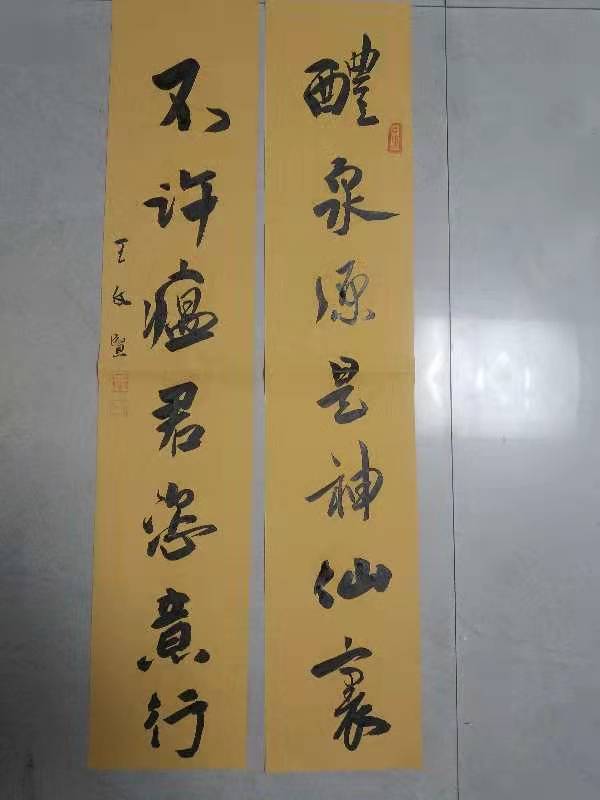 醴泉源是神仙裏
不许瘟君恣意行
王文贤